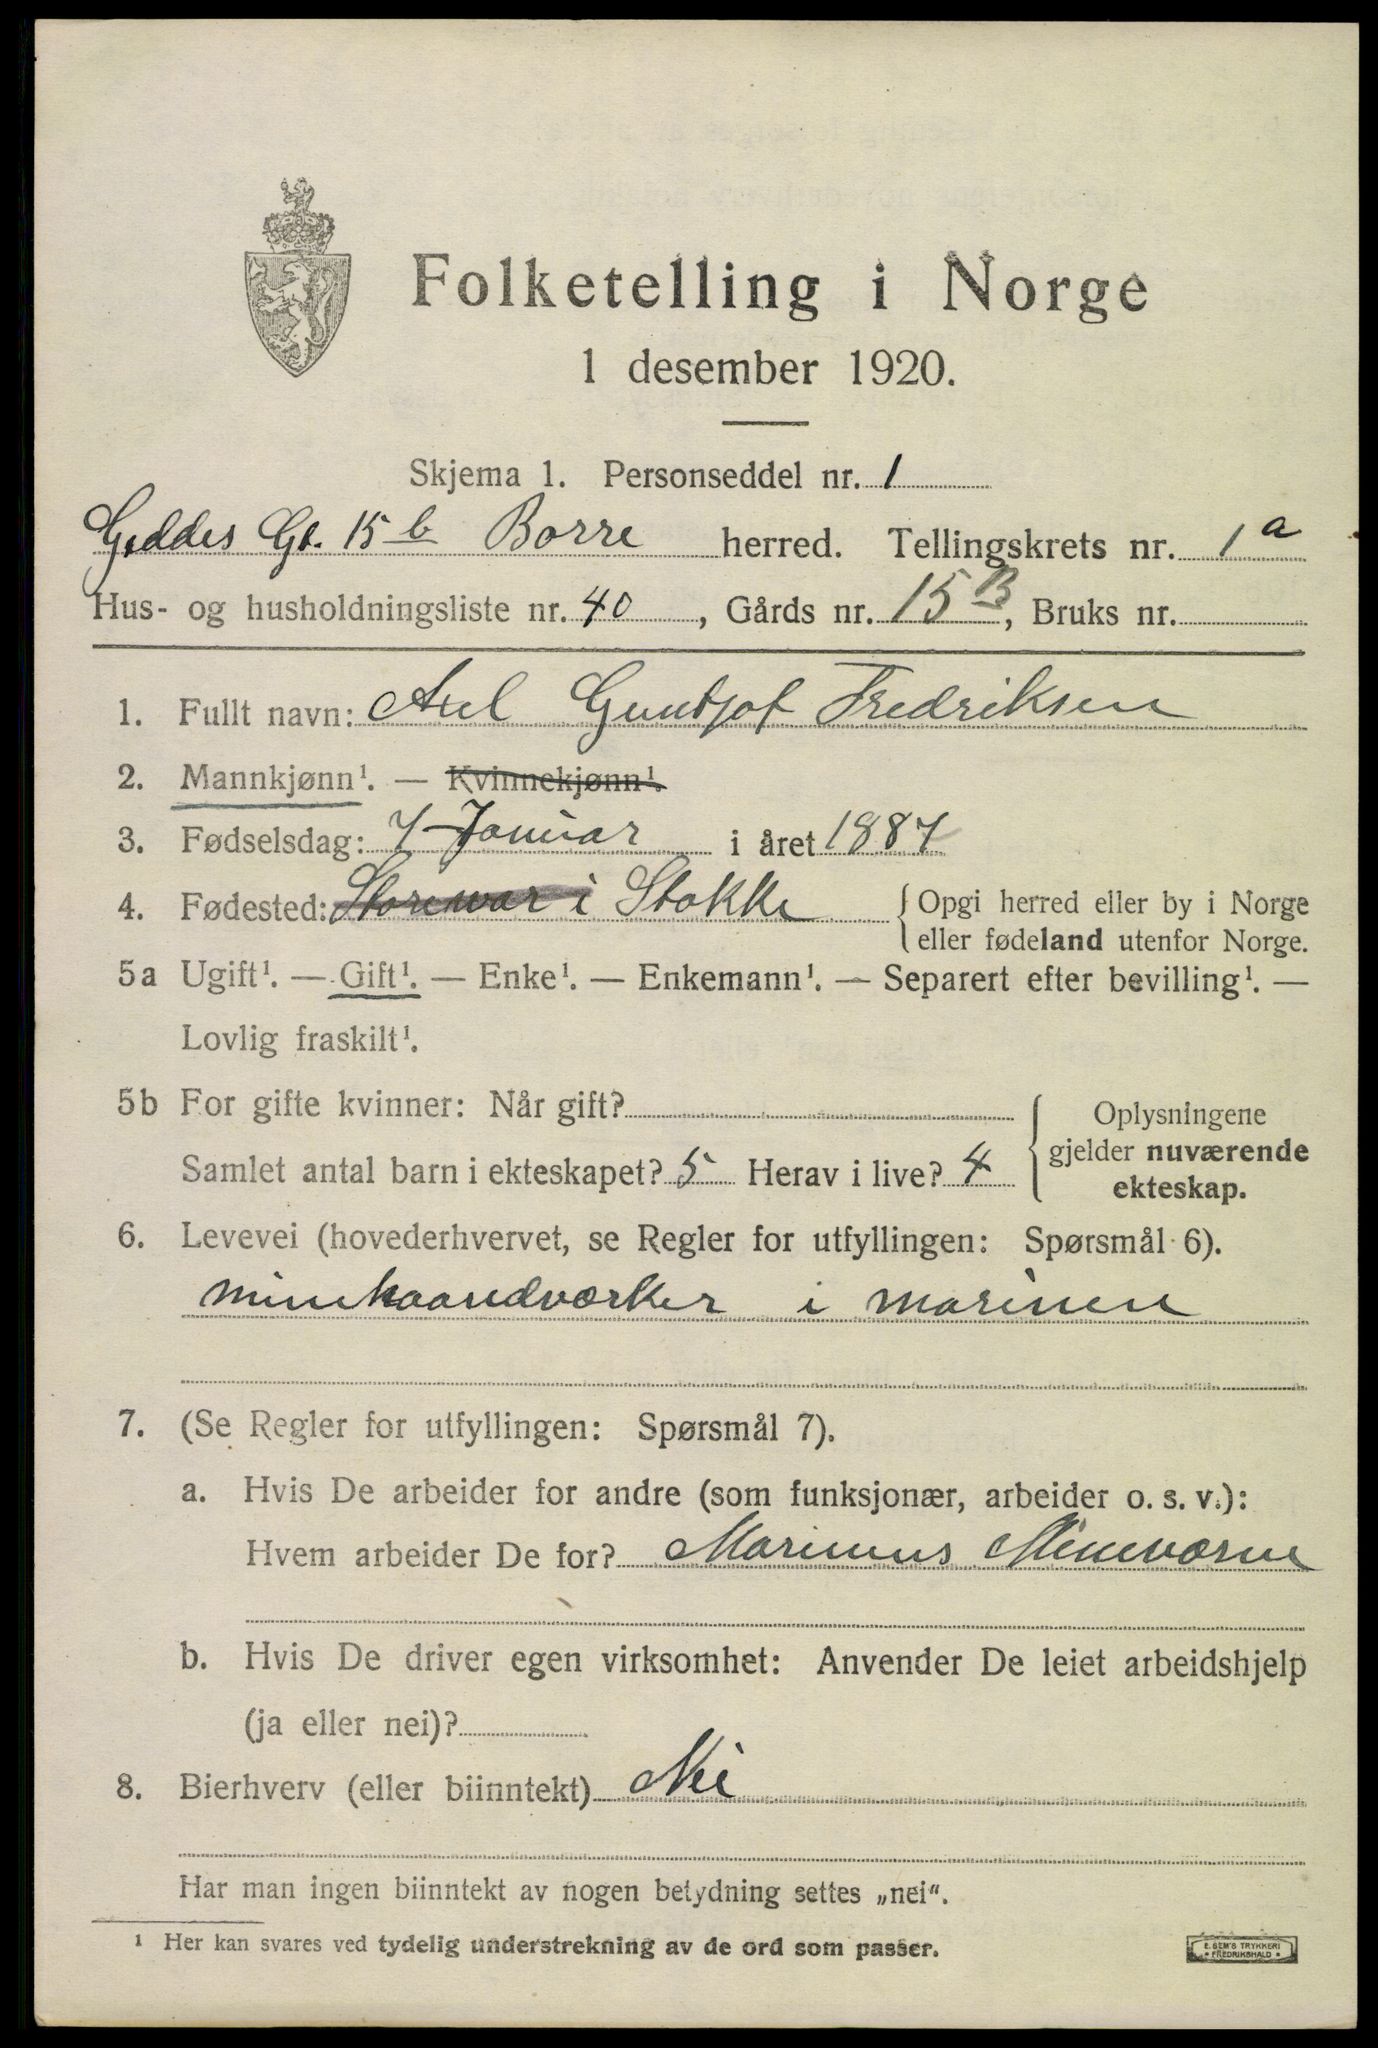 Folketelling i Norge
1 desember 1920.
Skjema 1. Personseddel nr. 1
Geddes Gt. 15 b Borre herred. Tellingskrets nr. 1 a
Hus- og husholdningsliste nr. 40, Gårds nr. 15 B, Bruks nr.
1. Fullt navn: Axel Fredriksen
2. Mannkjønn¹. — Kvinnekjønn¹.
3. Fødselsdag: 7 Januar i året 1887
4. Fødested: i Stokke { Opgi herred eller by i Norge
eller fødeland utenfor Norge.
5a Ugift¹. — Gift¹. — Enke¹. — Enkemann¹. — Separert efter bevilling¹. —
Lovlig fraskilt¹.
5b For gifte kvinner: Når gift? { Oplysningene
Samlet antal barn i ekteskapet? 5 Herav i live? 4 gjelder nuværende
ekteskap.
6. Levevei (hovederhvervet, se Regler for utfyllingen: Spørsmål 6).
minehaandværker i marinen
7. (Se Regler for utfyllingen: Spørsmål 7).
a. Hvis De arbeider for andre (som funksjonær, arbeider o. s. v.):
Hvem arbeider De for? Marinens Minevæsen
b. Hvis De driver egen virksomhet: Anvender De leiet arbeidshjelp
(ja eller nei)?
8. Bierhverv (eller biinntekt) Nei
Har man ingen biinntekt av nogen betydning settes „nei“.
¹ Her kan svares ved tydelig understrekning av de ord som passer.
E. SEM'S TRYKKERI
• FREDRIKSHALD •